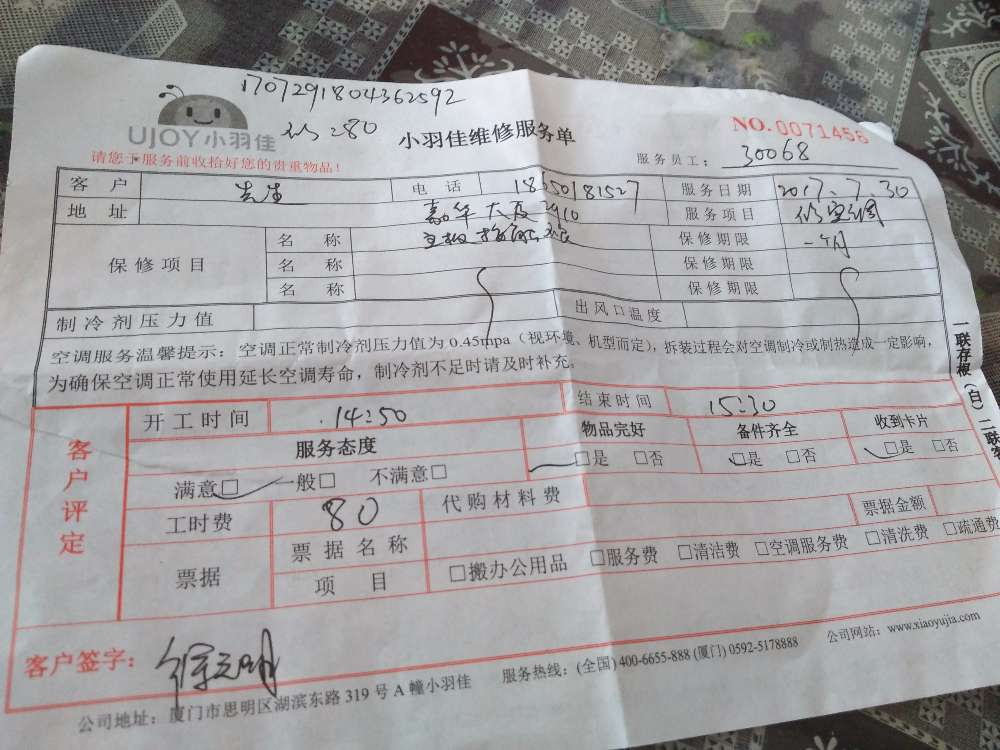 1707291804362592
280
UJOY小羽佳
小羽佳维修服务单
NO.0071456
请您于服务前收拾好您的贵重物品!
服务员工: 30068
客户 先生 电话 服务日期 2017.7.30
地址 嘉华大厦2910 服务项目 修空调
保修项目 名称 保修期限 一个月
名称 保修期限
名称 保修期限
制冷剂压力值 出风口温度
空调服务温馨提示:空调正常制冷剂压力值为0.45mpa(视环境、机型而定),拆装过程会对空调制冷或制热造成一定影响,
为确保空调正常使用延长空调寿命,制冷剂不足时请及时补充。
客户评定
开工时间 14:50 结束时间 15:30
服务态度 物品完好 备件齐全 收到卡片
满意□ 一般□ 不满意□ □是 □否 □是 □否 □是 □否
工时费 80 代购材料费 票据金额
票据 票据名称
项目 □搬办公用品 □服务费 □清洁费 □空调服务费 □清洗费 □疏通费
客户签字:
公司地址:厦门市思明区湖滨东路319号A幢小羽佳 服务热线:(全国)400-6655-888(厦门)0592-5178888 公司网站:www.xiaoyujia.com
一联存根(白)二联客